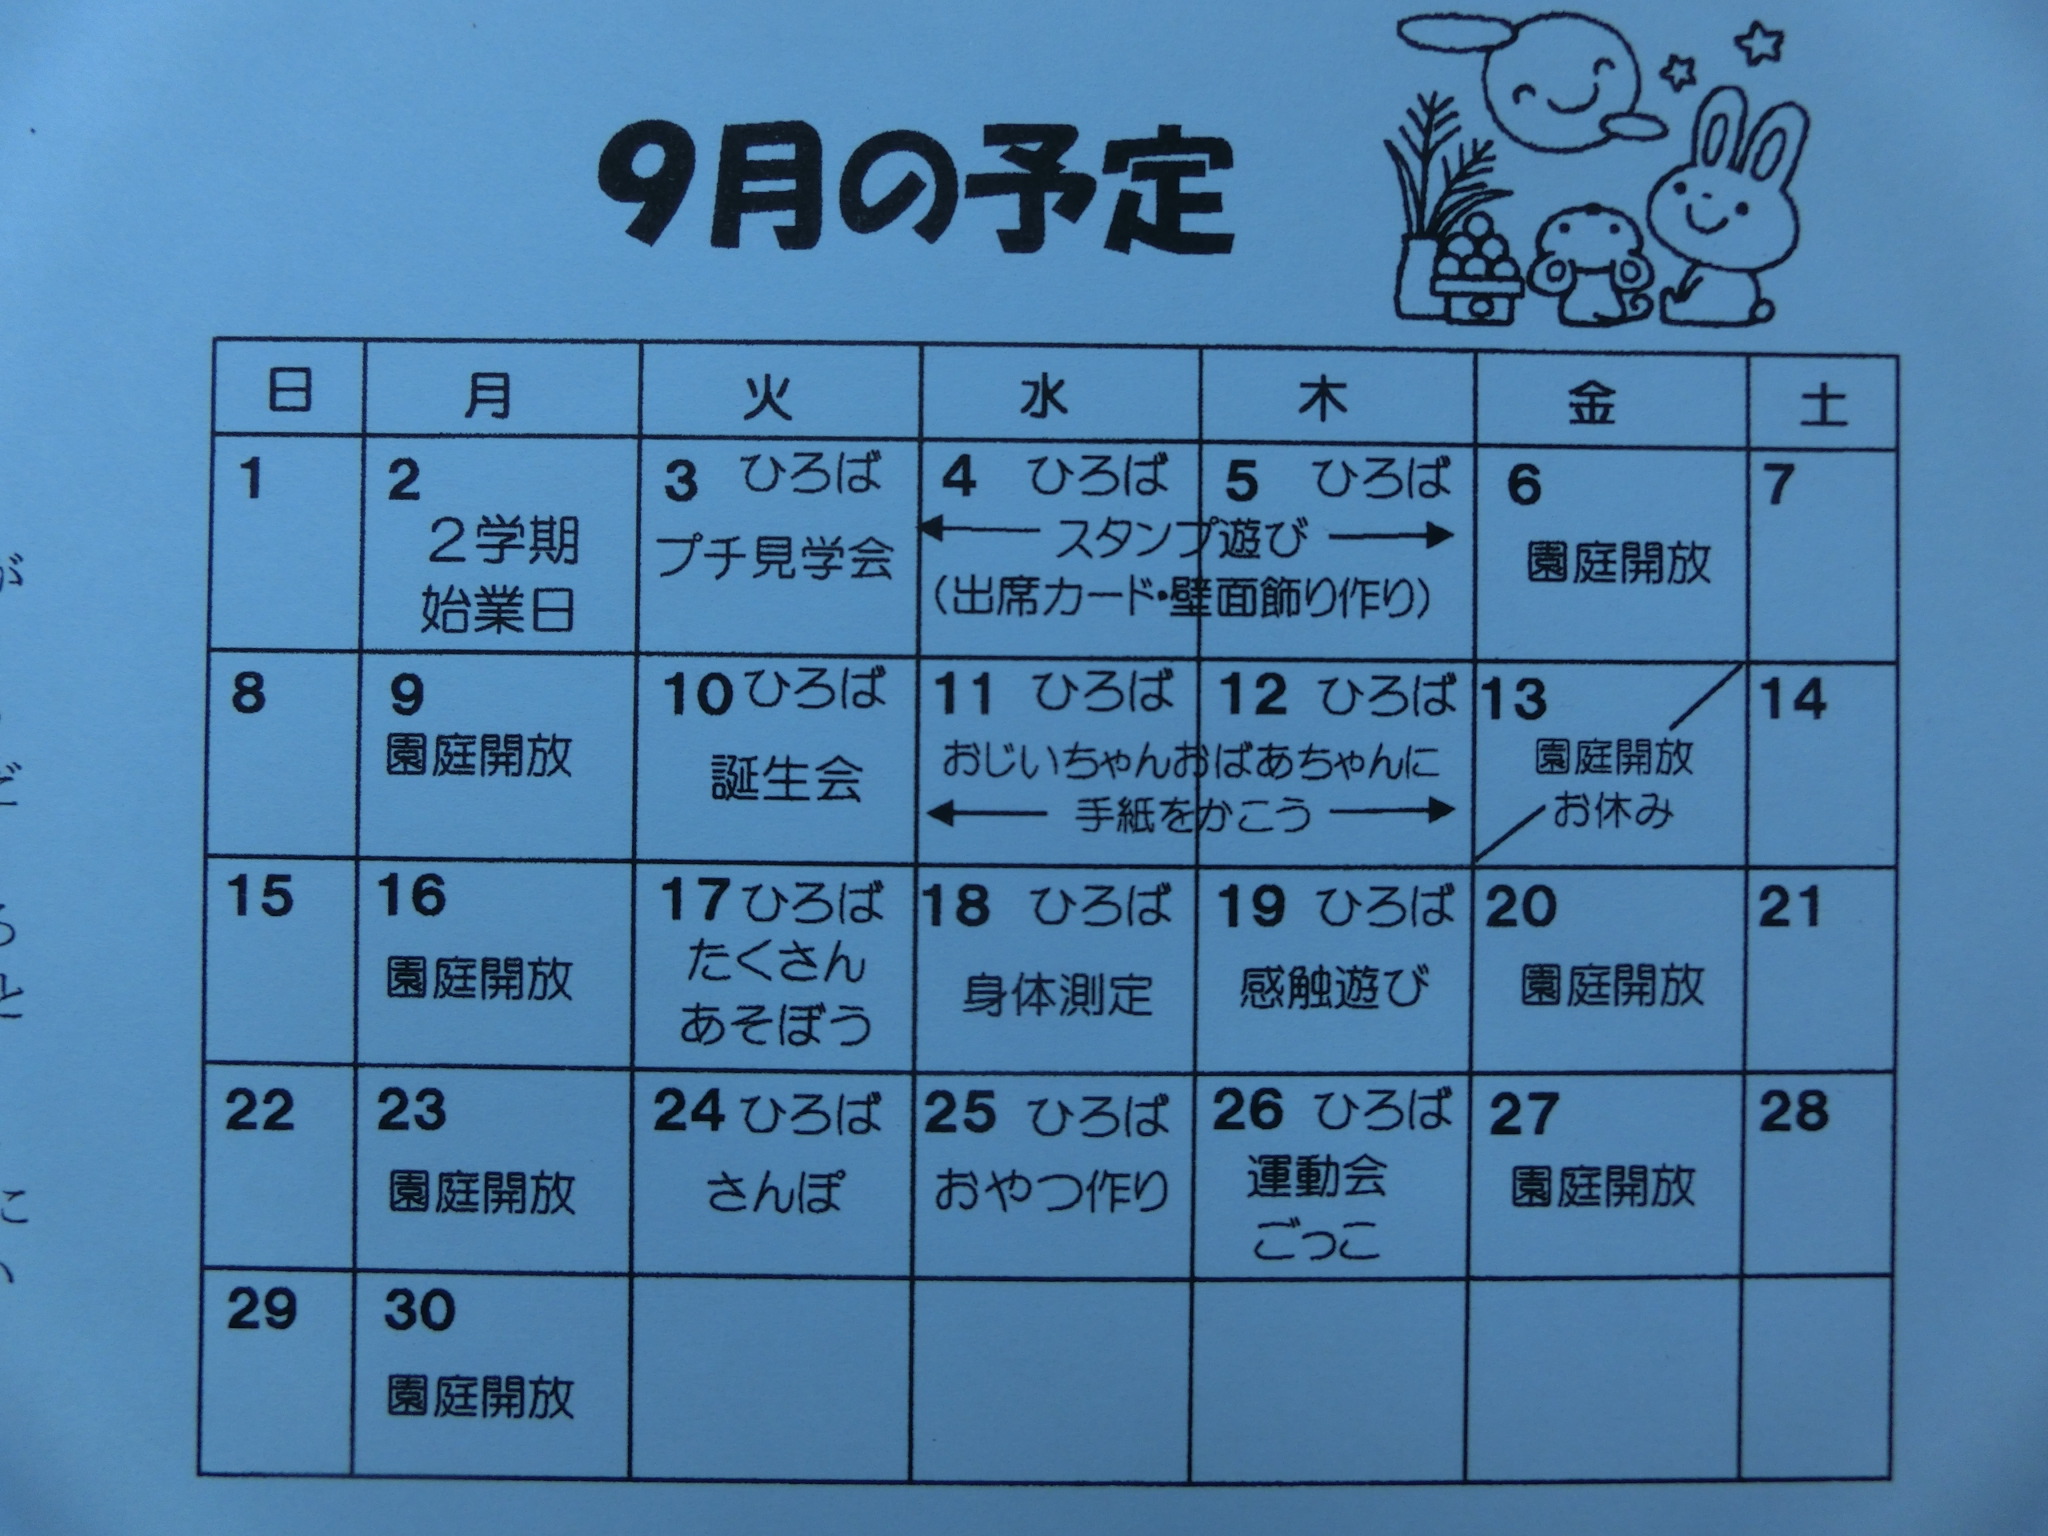 9月の予定
日 月 火 水 木 金 土
1 2 3 ひろば 4 ひろば 5 ひろば 6 7
2学期
始業日
プチ見学会
スタンプ遊び
(出席カード・壁面飾り作り)
園庭開放
8 9 10 ひろば 11 ひろば 12 ひろば 13 14
園庭開放
誕生会
おじいちゃんおばあちゃんに
手紙をかこう
園庭開放
お休み
15 16 17 ひろば 18 ひろば 19 ひろば 20 21
園庭開放
たくさん
あそぼう
身体測定
感触遊び
園庭開放
22 23 24 ひろば 25 ひろば 26 ひろば 27 28
園庭開放
さんぽ
おやつ作り
運動会
ごっこ
園庭開放
29 30
園庭開放